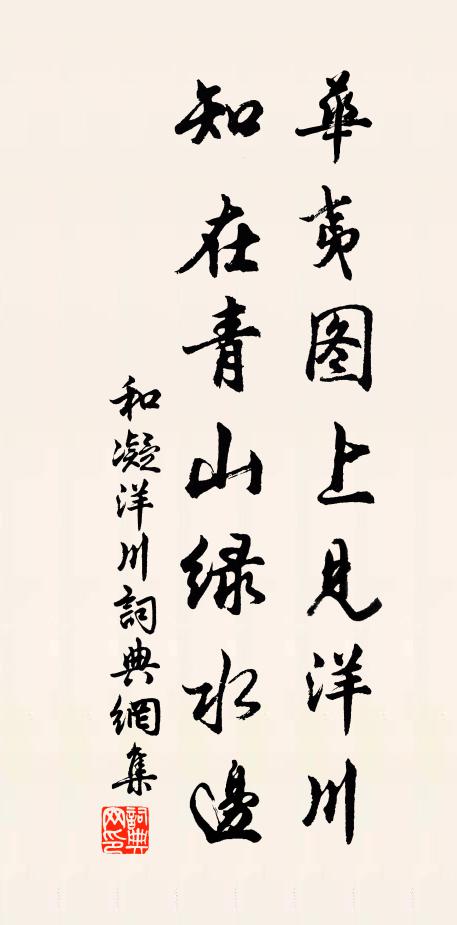 華夷图上見洋川
知在青山绿水邊
和凝洋川詞典網集
詞典网印